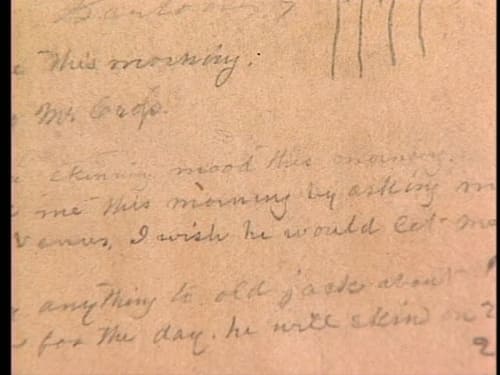 this morning.
Mr Crops.
skinning mood this morning.
me this morning by asking m
I wish he would let me
anything to old jack about
for the day. he will skin on